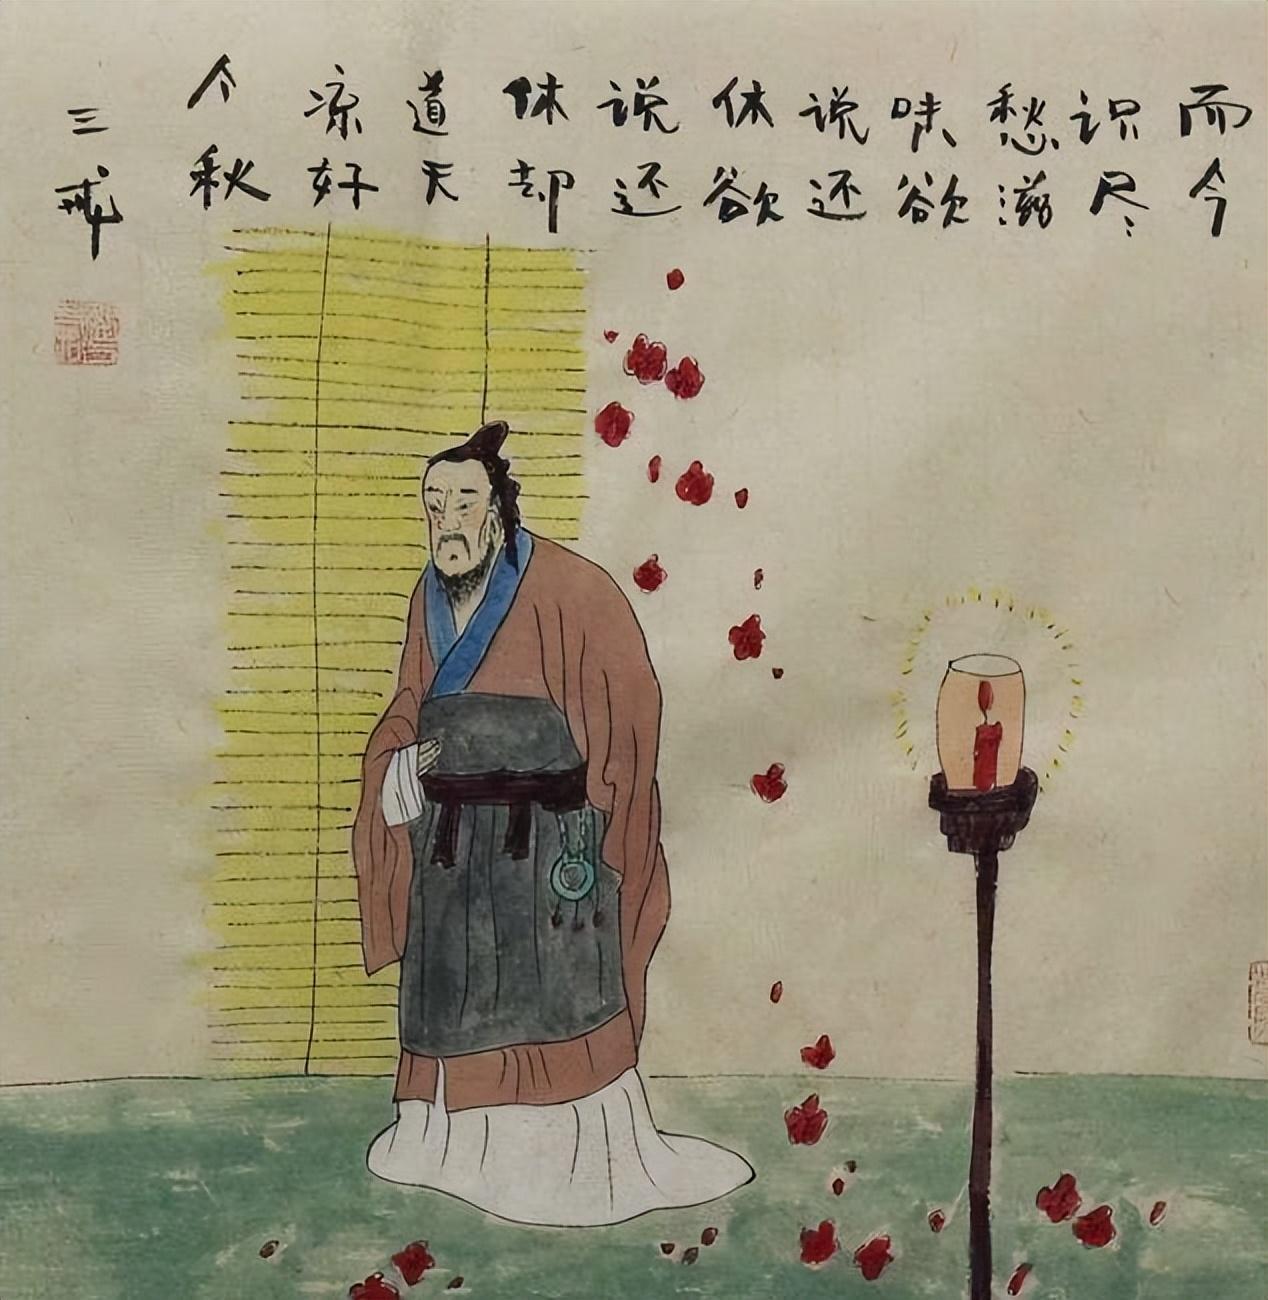 而今
识尽
愁滋
味欲
说还
休欲
说还
休却
道天
凉好
个秋
三戒